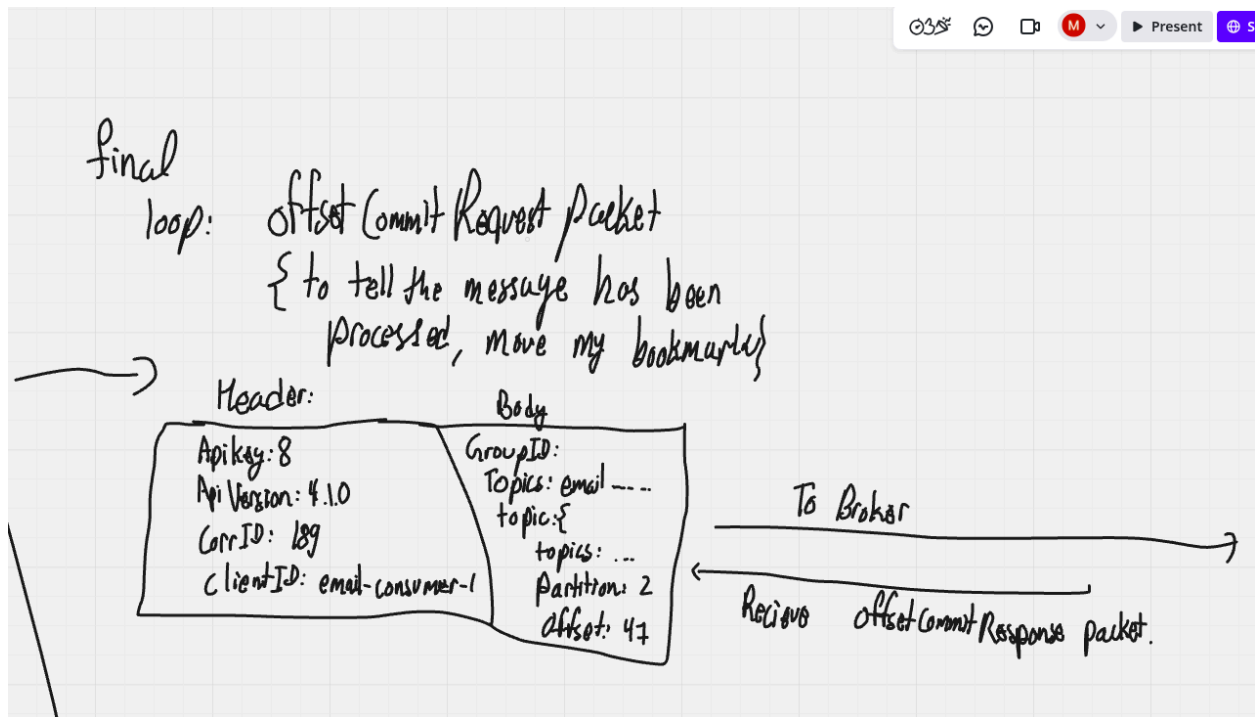 M
Present
S
final
loop: offset Commit Request packet
{ to tell the message has been
processed, move my bookmark}
Header:
Body
Apikey: 8
Api Version: 4.1.0
CorrID: 189
ClientID: email-consumer-1
GroupID:
Topics: email -----
topic:{
topics: ...
Partition: 2
offset: 47
To Broker
Recieve offsetCommit Response packet.